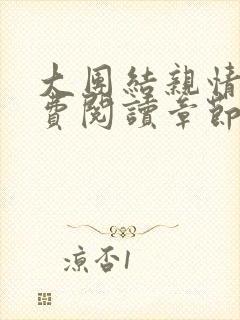 大團結親情
費閱讀章節
涼否1